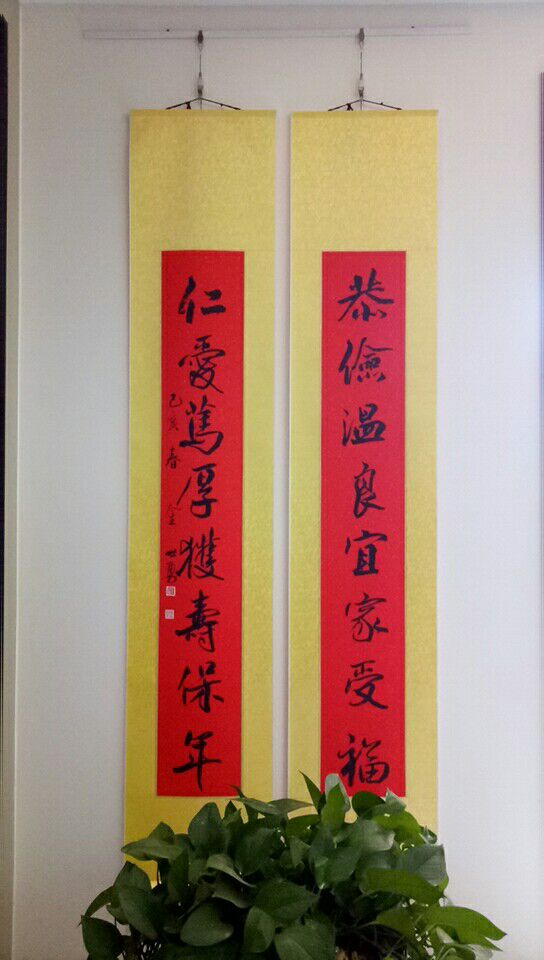 恭儉溫良宜家受福
仁愛篤厚獲壽保年
己亥春